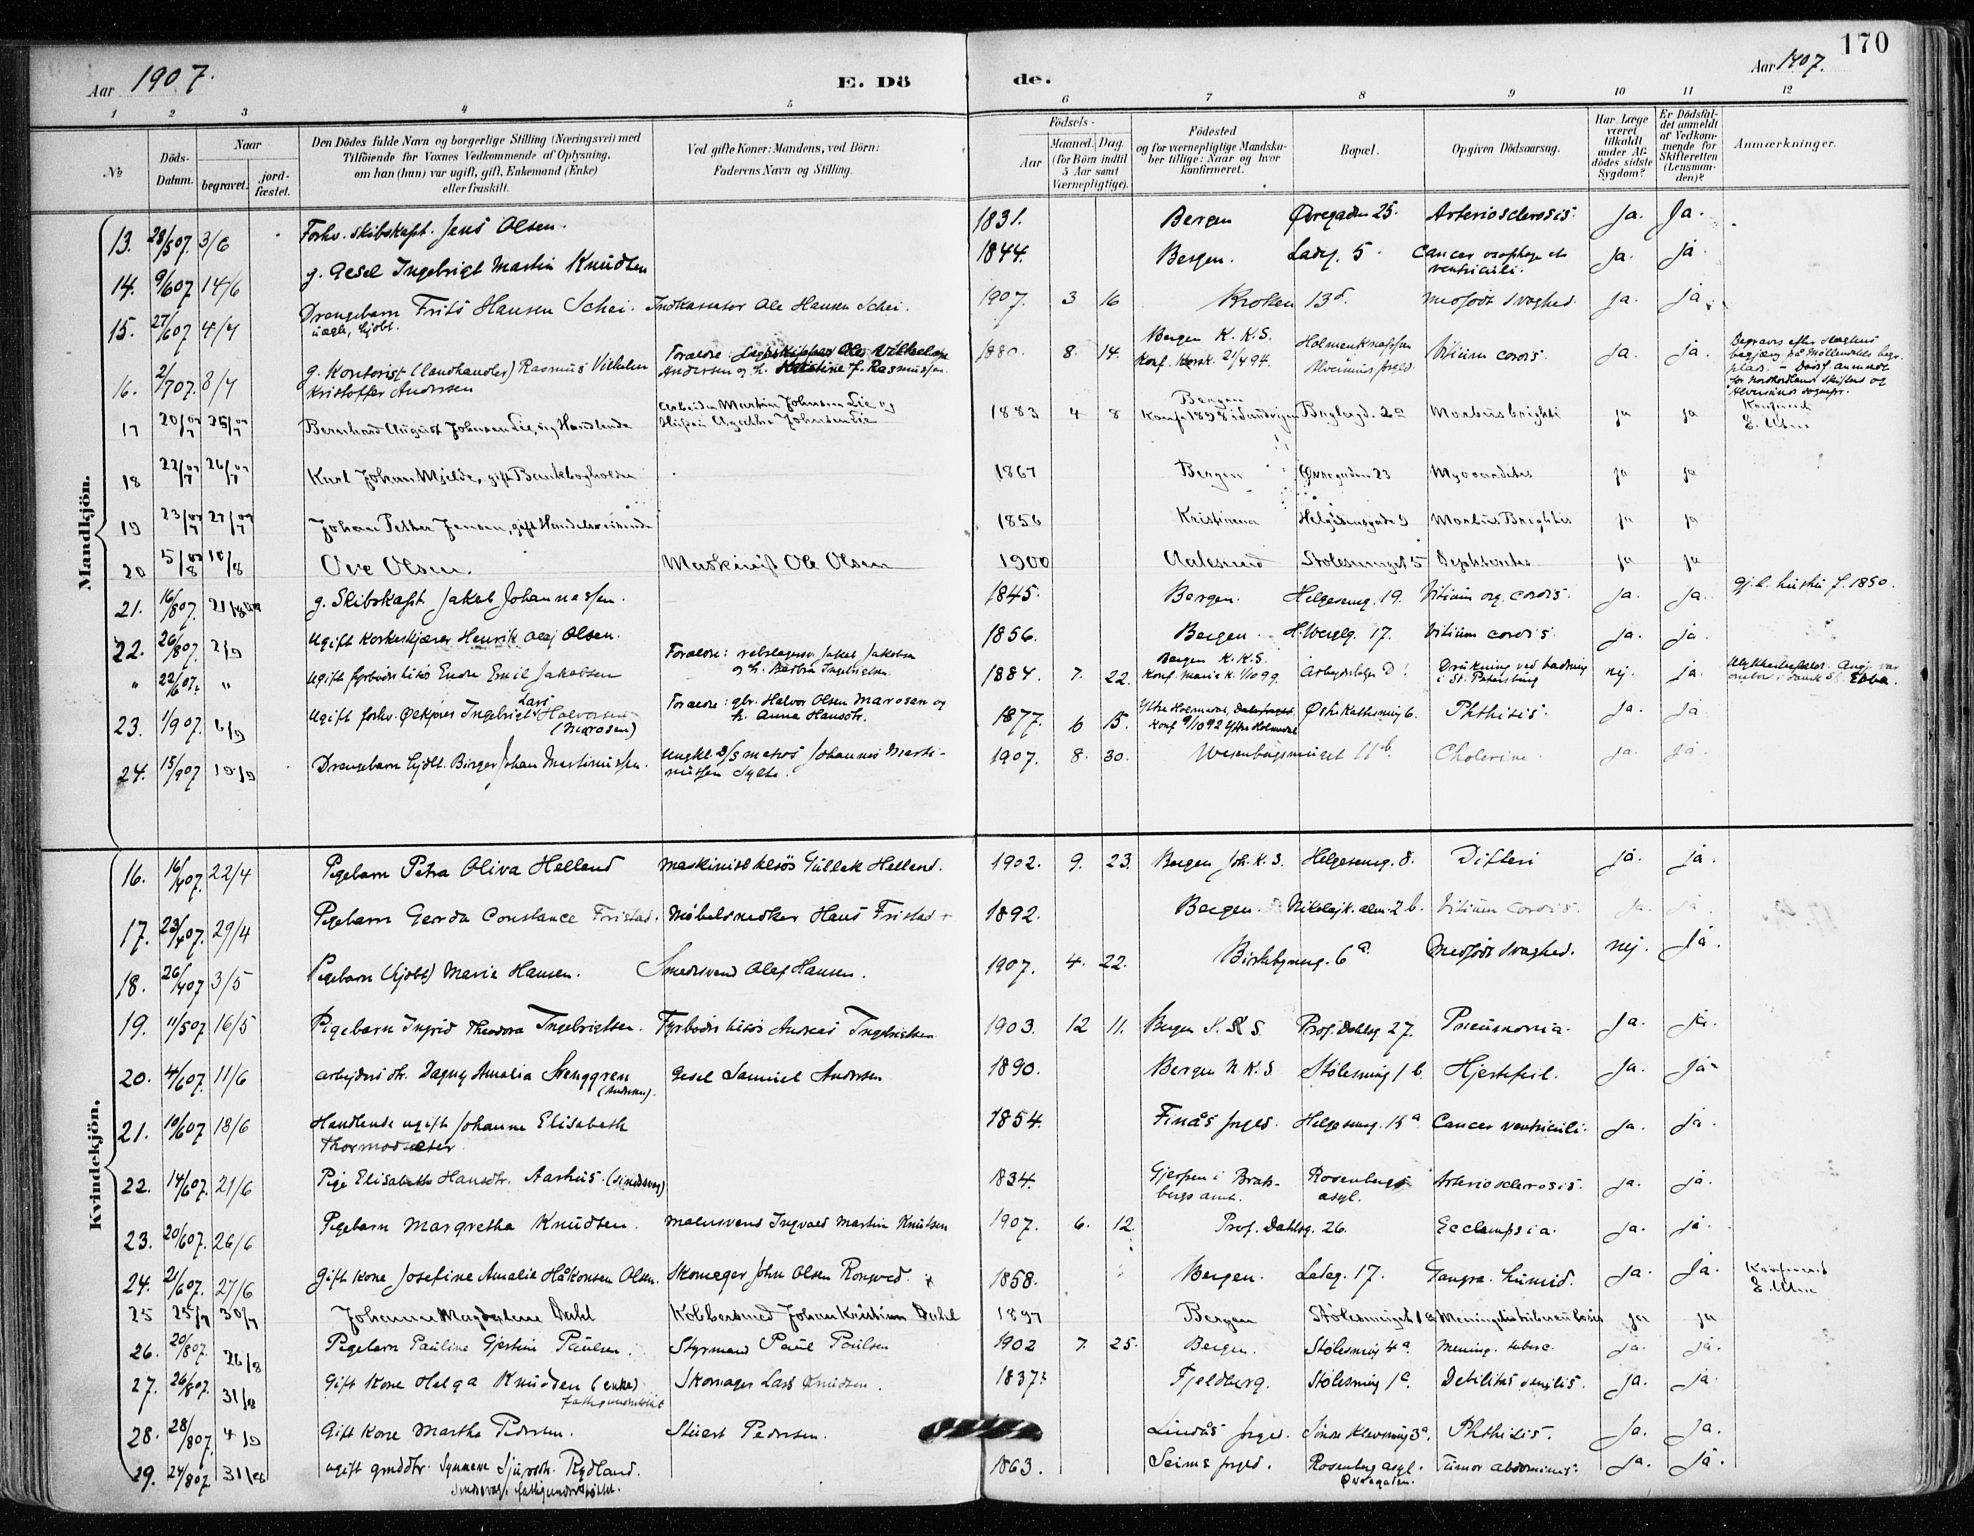 Aar 1907.
E. Dö
de.
Aar 1907.
170
1 2 3 4 5 6 7 8 9 10 11 12
No
Döds-Datum.
Naar
begravet.
jord-fæstet.
Den Dödes fulde Navn og borgerlige Stilling (Næringsvei) med
Tilföiende for Voxnes Vedkommende af Oplysning,
om han (hun) var ugift, gift, Enkemand (Enke)
eller fraskilt.
Ved gifte Koner: Mandens, ved Börn:
Faderens Navn og Stilling.
Födsels-
Aar
Maaned. Dag.
(for Börn indtil
5 Aar samt
Værnepligtige).
Födested
og for værnepligtige Mandska-
ber tillige: Naar og hvor
konfirmeret.
Bopæl.
Opgiven Dödsaarsag.
Har Læge
været
tilkaldt
under Af-
dödes sidste
Sygdom?
Er Dödsfal-
det anmeldt
af Vedkom-
mende for
Skifteretten
(Lensman-
den)?
Anmærkninger.
Mandkjön.
13. 28/507. 3/6 Forhv. skibskapt. Jens Olsen. 1831. Bergen Øvregaden 25. Arteriosclerosis. Ja. Ja.
14. 9/607 14/6 g. Gesel Ingebrigt Martin Knudsen 1844. Bergen. Ladeg. 5. Cancer oesophagi et ventriculi. Ja. Ja.
15. 27/607 4/7 Drengebarn Frits Hansen Schei. uægte, hjdbt. Indkassator Ole Hansen Schei. 1907. 3 16 Krohen 13d. medfødt svaghed. Ja. Ja.
16. 2/707. 8/7 g. Kontorist (landhandler) Rasmus Vilhelm Kristoffer Andersen Forældre: Andersen og h. Rasmussen. 1880. 8. 14. Bergen K.K.S. Konf. Korsk. 21/4 94. Holmenknappen Alversund prgld. Vitium cordis. Ja. Ja. Begraves efter slægtens begjæring på Møllendals begr. plads.
17 20/07 7 25/07 7 Bernhard August Johnsen Lie, ug Handlende Arbeider Martin Johnsen Lie og Hustru Agathe Johnsen Lie 1883 4 8 Bergen Konf 1898 i Sandvigen 2a Morbus brighti ja ja
18 22/07 7 26/07 7 Karl Johan Mjelde, gift Bankbogholder 1867 Bergen Øvregaden 23 Myocarditis ja ja
19 23/07 7 27/07 7 Johan Petter Jensen, gift Handelsreisende 1856 Kristiania Helgesensgade 9 Morbus Brightii ja ja
20 5/07 8 10/8 Ove Olsen. Maskinist Ole Olsen 1900 Aalesund Stølesmuget 5 ja ja
21. 16/807. 21/8 g. Skibskapt Jakob Johannessen. 1845. Bergen. Helgesensg. 19. Vitium org. cordis. Ja. Ja. gj. l. hustru f. 1850.
22. 26/807. 2/9 Ugift Korkeskjærer Henrik Olaj Olsen. 1856. Bergen. H. Wergelg. 17. Vitium cordis. Ja. Ja.
" 22/607. " Ugift fyrbøder Endre Emil Jakobsen Forældre: rebslagersv. Jakob Jakobsen og h. Ingebrigtsen. 1884. 7. 22. Bergen K.K.S. Konf. Marie K. 1/10 99. Drukning ved badning i St. Petersburg nej. ja. Ebba.
23. 1/907. 6/9 Ugift forhv. Ølkjører Ingebrigt Lars Halvorsen (Marøsen) Forældre: gbr. Halvor Olsen Marøsen og h. Anna Hansdtr. 1877. 6 15. Ytre Holmedal, Konf 9/10 92 Ytre Holmedal Phthisis. Ja. Ja.
24. 15/907 19/9 Drengebarn hjdbt. Birger Johan Martinussen. Ungkl. D/S matros Johannes Marti-nussen Sylte. 1907. 8. 30. Wesenbergsmuget 11b. Cholerine. Ja. Ja.
Kvindekjön.
16. 16/407. 22/4 Pigebarn Petra Oliva Helland Gullek Helland. 1902. 9. 23. Bergen Joh. K.S. Helgesensg. 8. Difteri ja. ja.
17. 23/407. 29/4 Pigebarn Gerda Constance Fristad. Møbelsnedker Hans Fristad 1892. Bergen. Nikolajk. alm. 2b. Vitium cordis. Ja. Ja.
18. 26/407 3/5 Pigebarn (hjdbt) Marie Hansen. Smedsvend Olaf Hansen. 1907. 4. 22. Birkebgsmug. 6a Medfødt svaghed. nej. Ja.
19. 11/507. 16/5 Pigebarn Ingrid Theodora Ingebrigtsen. Andreas Ingebrigtsen 1903. 12 11. Bergen Prof. Dahlsg 27. Pneumonia. Ja. Ja.
20. 4/607. 11/6 arbejders dtr. Dagny Amalia Stenggren (Andersen). Gesel Samuel Andersen 1890. Bergen N.K.S Stølesmug 1b. Hjertefeil. Ja. Ja.
21. 10/607. 18/6 Handlende ugift Johanne Elisabeth Thormodsæter. 1854. Finås prgld. Helgesensg. 15a Cancer ventriculi. Ja. Ja.
22. 14/607. 21/6 Pige Elisabeth Hansdtr. Aarhus. 1834. Gjerpen i Brats-bergs amt. Rosenbergs asyl. Arteriosclerosis. Ja. Ja.
23. 20/607. 26/6 Pigebarn Margretha Knudsen. Malersvend Ingvald Martin Knutsen 1907. 6. 12. Prof. Dahlsg. 26. Ecclampsia. Ja. Ja.
24. 21/607. 27/6 Gift Kone Josefine Amalie Håkonsen Olsen. Skomager John Olsen 1858. Bergen. Ladeg. 17. Gangra. humid. Ja. Ja.
25 25/7 30/7 Johanna Magdalene Dahl Kobbersmed Johan Kristian Dahl 1897 Bergen Stølesmuget 1a Meningitis tuberculosis ja ja
26. 20/807. 26/8 Pigebarn Pauline Gjertine Paulsen. Styrmand Paul Poulsen 1902 7. 25. Bergen. Stølesmug 4a. Mening. tuberc. Ja. Ja.
27. 26/807. 31/8 Gift Kone Helga Knudsen (enke) fattigunderstøttet Skomager Lars Knudsen. 1837? Fjeldberg. Stølesmug 1a. Debilitas senilis. Ja. Ja.
28. 28/807. 4/9 Gift Kone Martha Pedersen. Stuert Pedersen. Lindås prgld. Phthisis. Ja. Ja.
29. 24/807. 31/8 ugift grddtr. Synneve Sjursdtr. Rydland. fattigunderstøttet. 1863. Seims prgld. Rosenberg asyl. Øvregaten. Tumor abdominis. Ja. Ja